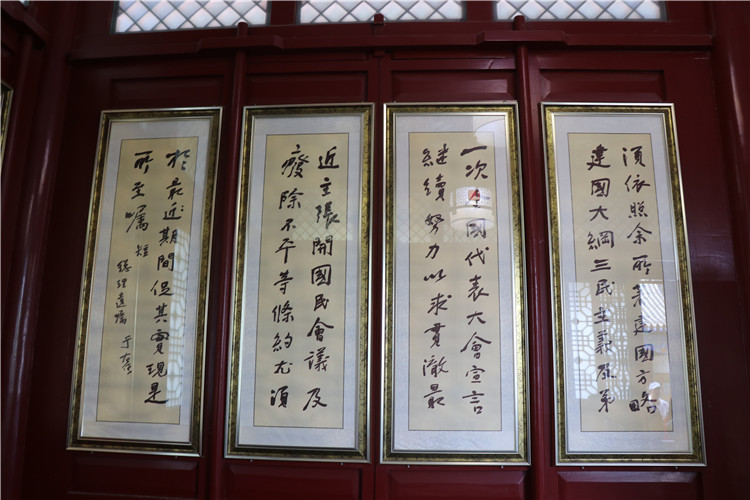 須依照余所著建國方略
建國大綱三民主義及第
一次全國代表大會宣言
継續努力以求貫澈最
近主張開國民會議及
廢除不平等條約尤須
於最近期間促其實現是
所至囑 短
總理遺囑 于右任